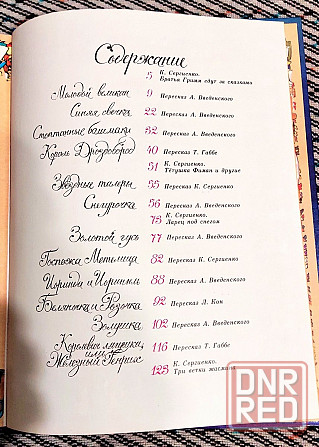 Содержание
5 К. Сергиенко.
Братья Гримм едут за сказками
Молодой великан 9 Пересказ А. Введенского
Синяя свечка 22 Пересказ А. Введенского
Стоптанные башмаки 32 Пересказ А. Введенского
Король Дроздобород 40 Пересказ Т. Габбе
51 К. Сергиенко.
Тётушка Фиман и другие
Звёздные талеры 55 Пересказ К. Сергиенко
Снегурочка 56 Пересказ А. Введенского
75 К. Сергиенко.
Ларец под снегом
Золотой гусь 77 Пересказ А. Введенского
Госпожа Метелица 82 Пересказ К. Сергиенко
Иоринда и Иорингель 88 Пересказ А. Введенского
Беляночка и Розочка 92 Пересказ Л. Кон
Золушка 102 Пересказ А. Введенского
Королевич-лягушка,
или 116 Пересказ Т. Габбе
Железный Генрих
125 К. Сергиенко.
Три ветки
DNR
RED